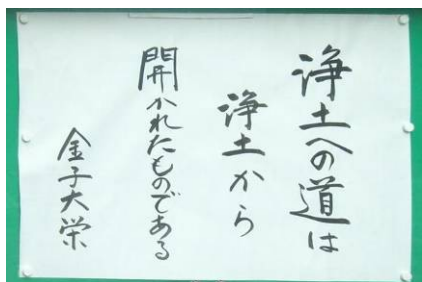 浄土への道は
浄土から
開かれたものである
金子大栄